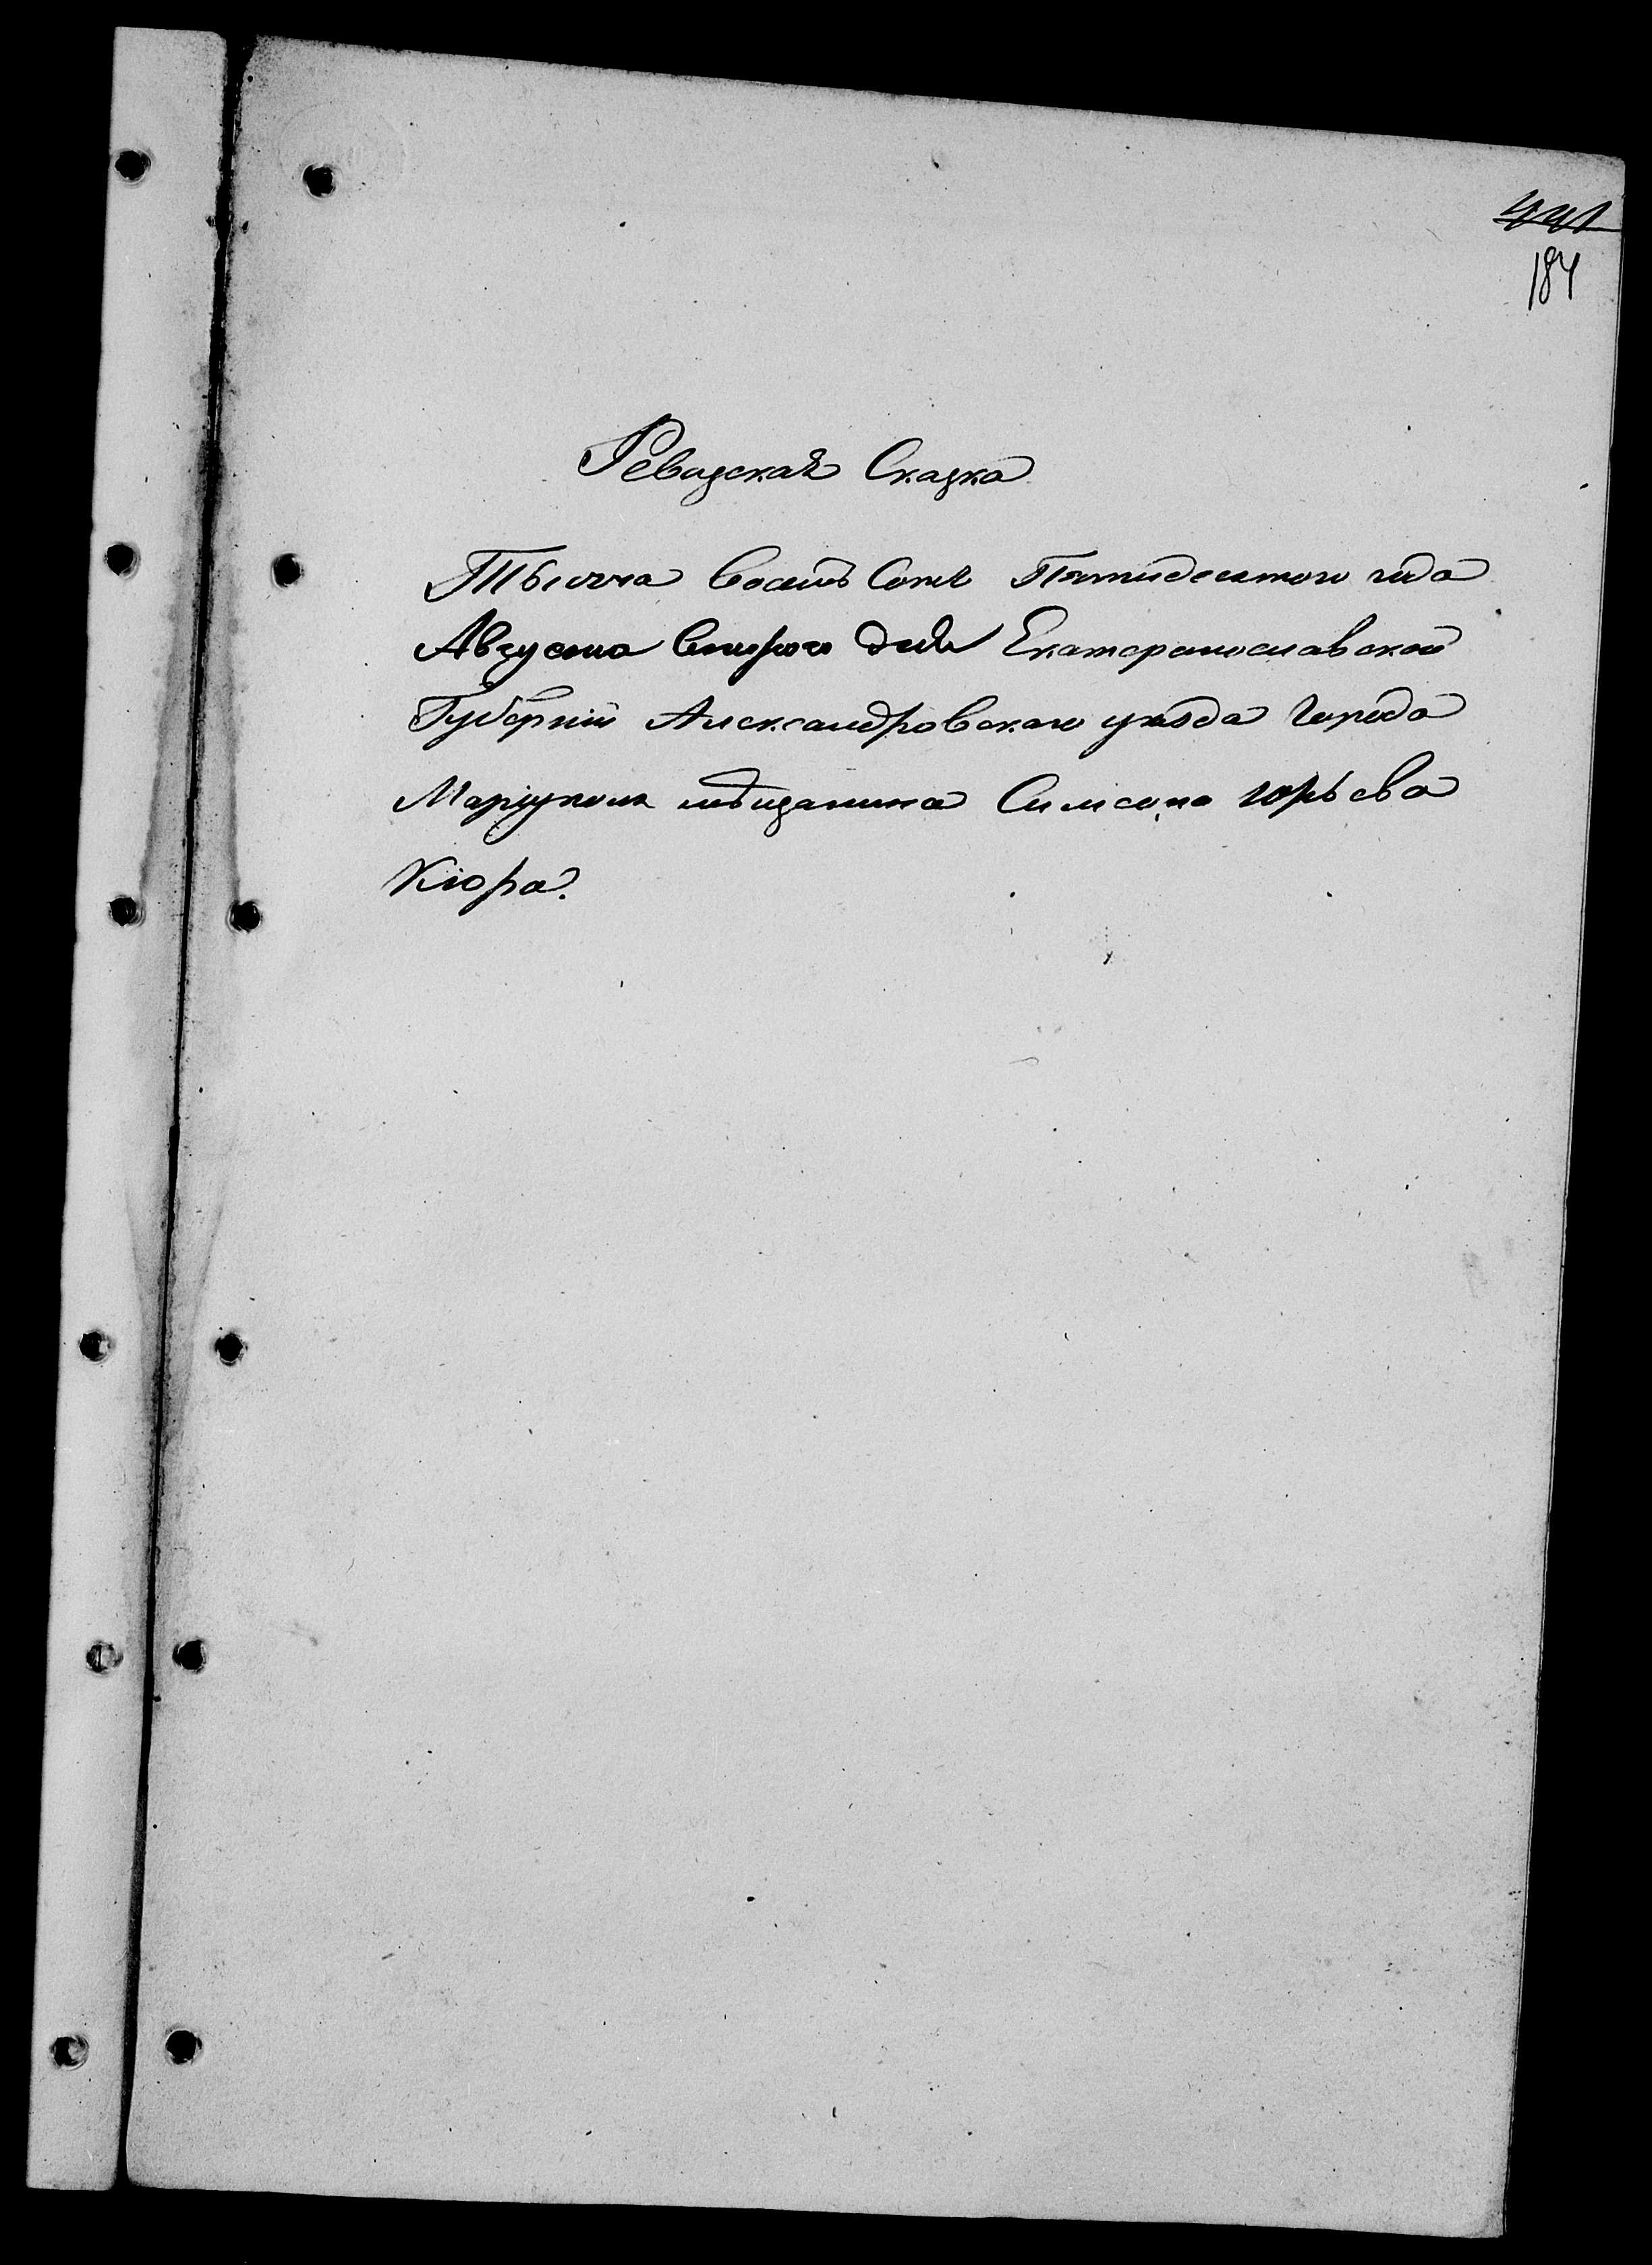 441
184
Ревизская Сказка
Тысяча восемь Сотъ Пятидесятого года
Августа второго дня Екатеринославской
Губерніи Александровскаго уѣзда города
Маріуполя мѣщанина Симеона Юрьева
Кюра.